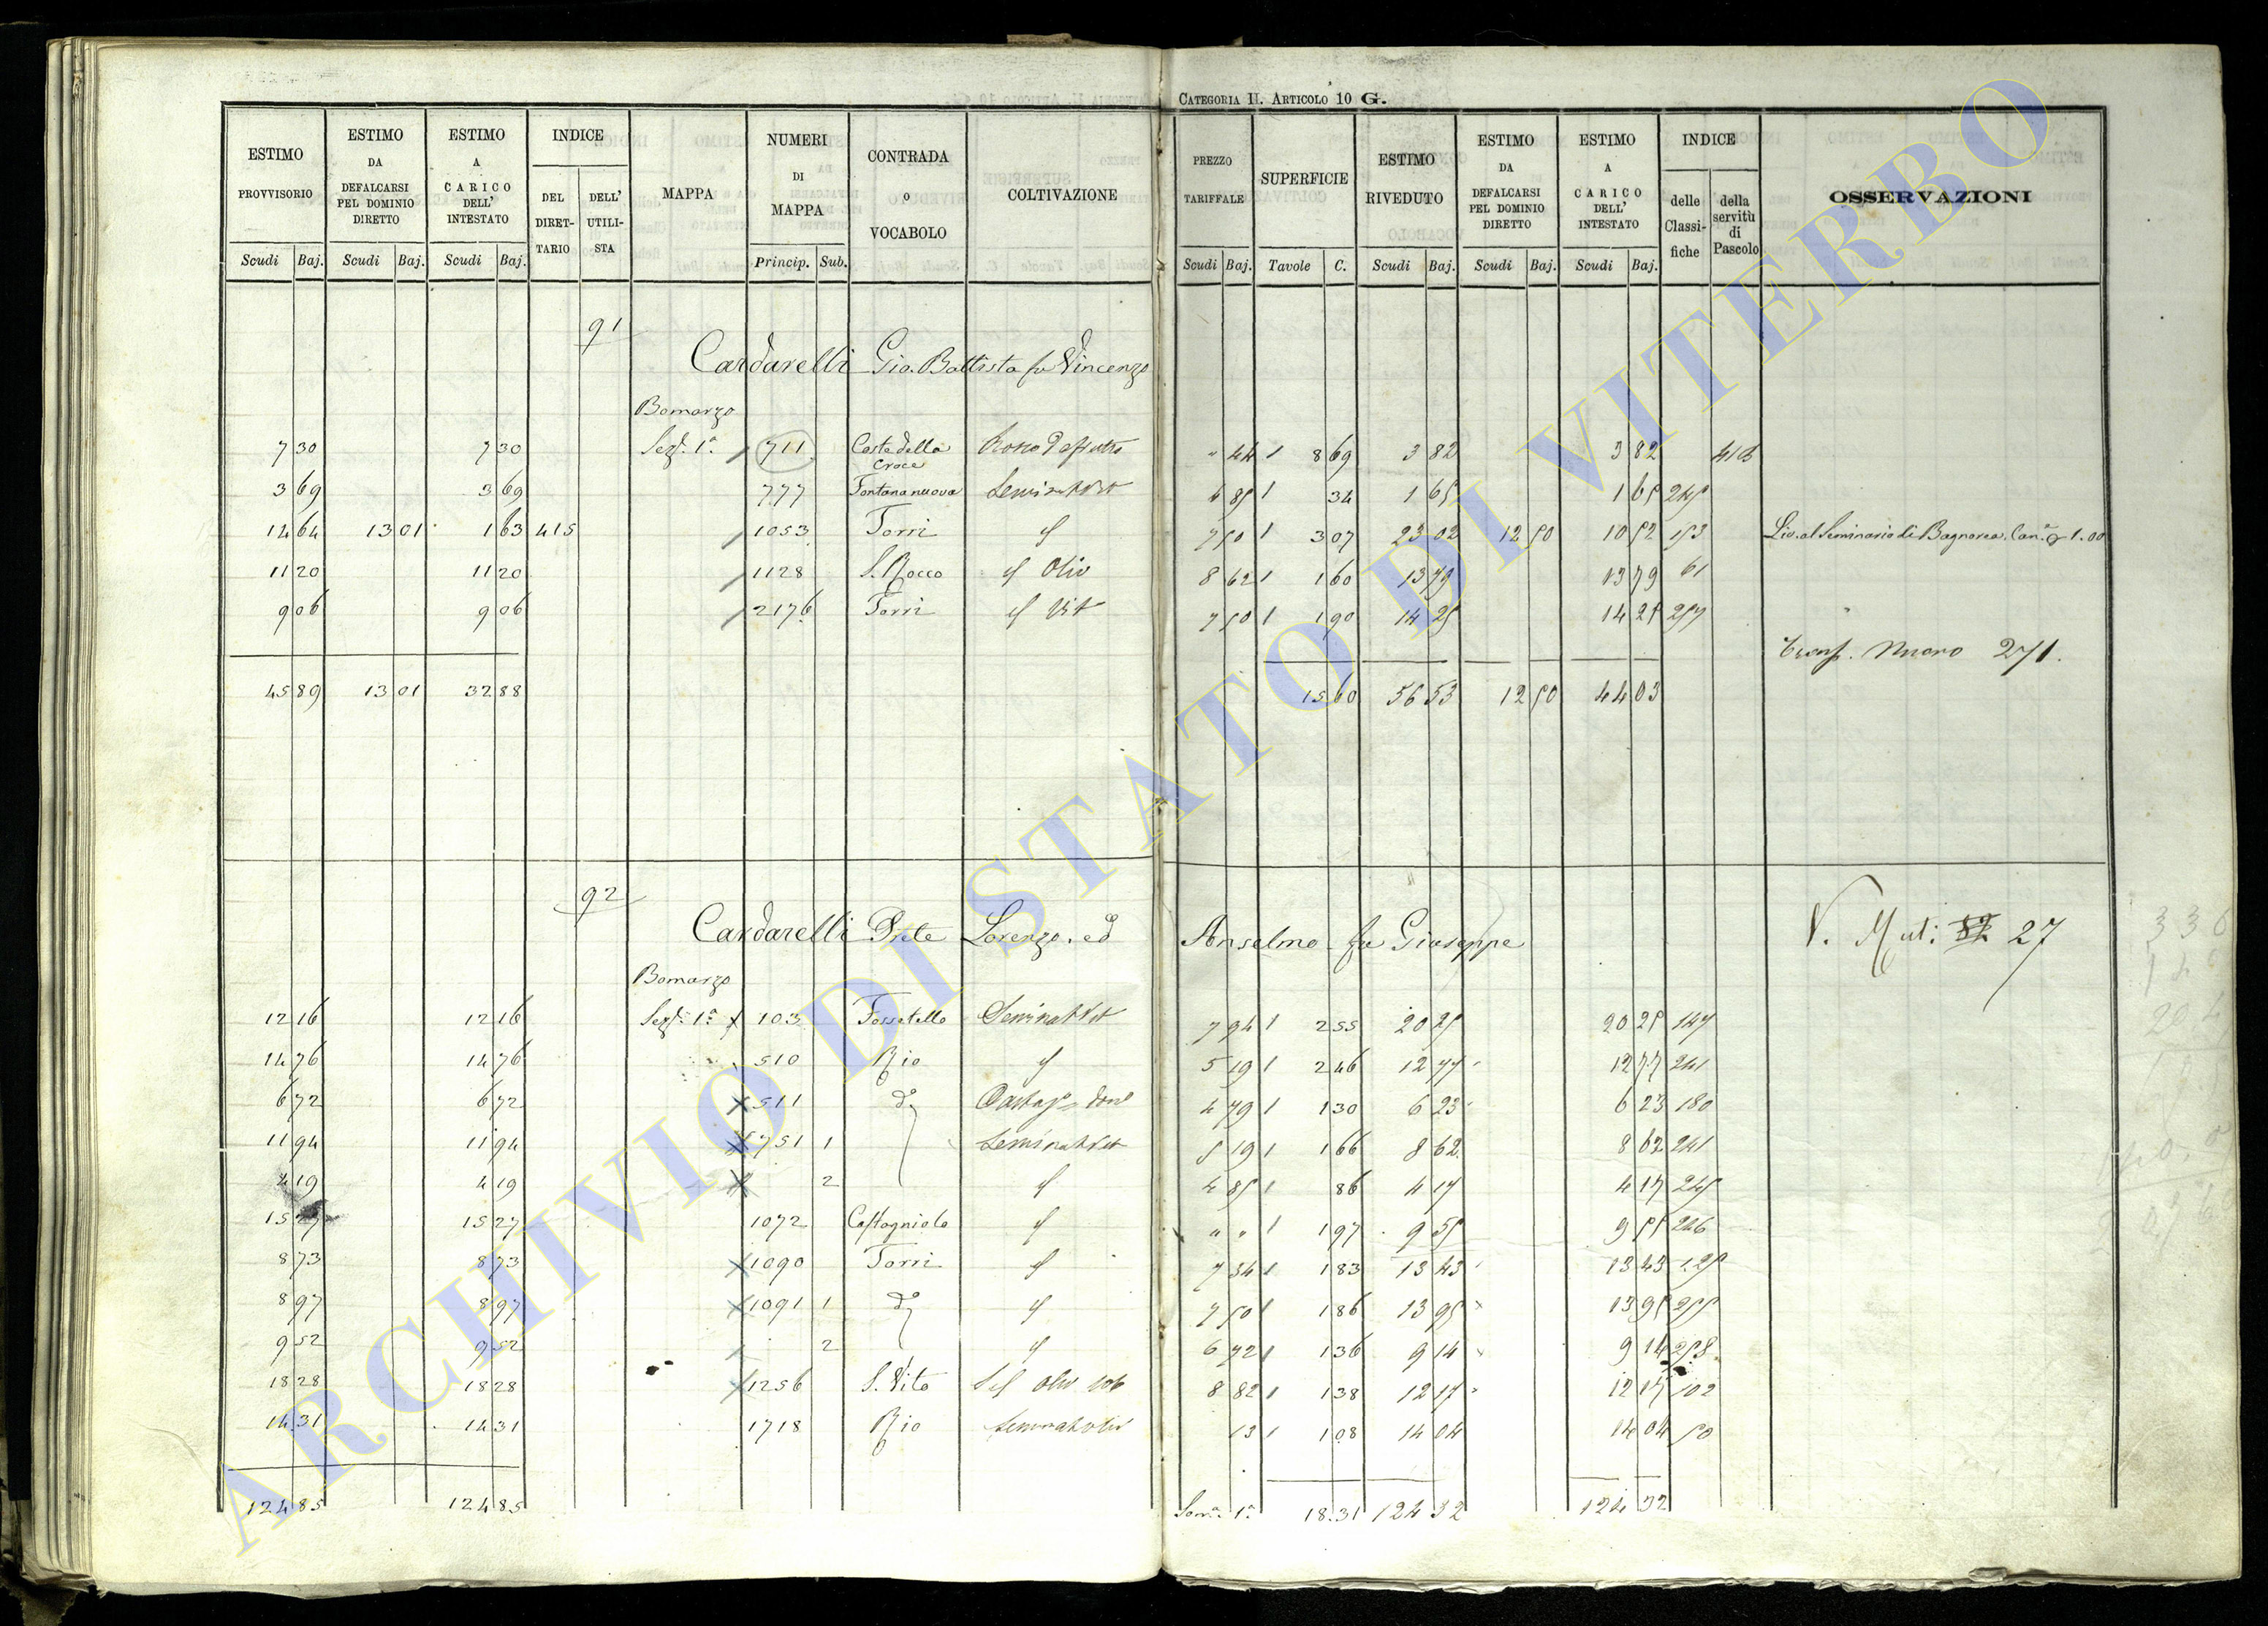 CATEGORIA II. ARTICOLO 10 G.
ESTIMO PROVVISORIO | ESTIMO DA DEFALCARSI PEL DOMINIO DIRETTO | ESTIMO A CARICO DELL' INTESTATO | INDICE | MAPPA | NUMERI DI MAPPA | CONTRADA O VOCABOLO | COLTIVAZIONE | PREZZO TARIFFALE | SUPERFICIE | ESTIMO RIVEDUTO | ESTIMO DA DEFALCARSI PEL DOMINIO DIRETTO | ESTIMO A CARICO DELL' INTESTATO | INDICE | OSSERVAZIONI
DEL DIRET-TARIO | DELL' UTILI-STA | delle Classi-fiche | della servitù di Pascolo
Scudi | Baj. | Scudi | Baj. | Scudi | Baj. | Princip. | Sub. | Scudi | Baj. | Tavole | C. | Scudi | Baj. | Scudi | Baj. | Scudi | Baj.
91
Cardarelli Gio. Battista fu Vincenzo
Bomarzo
7 30 | 7 30 | Sezne 1a | 711 | Coste della Croce | " 44 | 1 | 8 69 | 3 82 | 3 82
3 69 | 3 69 | 777 | Fontananuova | Seminat Vit | 4 85 | 1 | 34 | 1 65 | 1 65 | 245
14 64 | 13 01 | 1 63 | 415 | 1053 | Torri | 7 50 | 1 | 3 07 | 23 02 | 12 50 | 10 52 | 153 | Liv. al Seminario di Bagnorea. Can. 1.00
11 20 | 11 20 | 1128 | S. Rocco | Oliv | 8 62 | 1 | 1 60 | 13 79 | 13 79 | 61
9 06 | 9 06 | 2176 | Torri | Vit | 7 50 | 1 | 1 90 | 14 25 | 14 25 | 257
Trasp. Nuovo 271.
45 89 | 13 01 | 32 88 | 15 60 | 56 53 | 12 50 | 44 03
92
Cardarelli Prete Lorenzo. ed Anselmo fu Giuseppe
V. Mut: 27
Bomarzo
12 16 | 12 16 | Sezne 1a | 103 | Fossatello | Seminat Vit | 7 94 | 1 | 2 55 | 20 25 | 20 25 | 147
14 76 | 14 76 | 510 | Rio | 5 19 | 1 | 2 46 | 12 77 | 12 77 | 241
6 72 | 6 72 | 511 | do | 4 79 | 1 | 1 30 | 6 23 | 6 23 | 180
11 94 | 11 94 | 751 | 1 | Seminat Vit | 5 19 | 1 | 1 66 | 8 62 | 8 62 | 241
4 19 | 4 19 | 2 | 4 85 | 1 | 86 | 4 17 | 4 17 | 245
15 27 | 15 27 | 1072 | Castagniolo | " " | 1 | 1 97 | 9 55 | 9 55 | 246
8 73 | 8 73 | 1090 | Torri | 7 34 | 1 | 1 83 | 13 43 | 13 43
8 97 | 8 97 | 1091 | 1 | do | 7 50 | 1 | 1 86 | 13 95 | 13 95 | 255
9 52 | 9 52 | 2 | 6 72 | 1 | 1 36 | 9 14 | 9 14 | 258
18 28 | 18 28 | 1256 | S. Vito | 8 82 | 1 | 1 38 | 12 17 | 12 17 | 102
14 31 | 14 31 | 1718 | Rio | Seminat oliv | 13 | 1 | 1 08 | 14 04 | 14 04 | 50
124 85 | 124 85 | Som. 1a | 18.31 | 124 32 | 124 32
ARCHIVIO DI STATO DI VITERBO